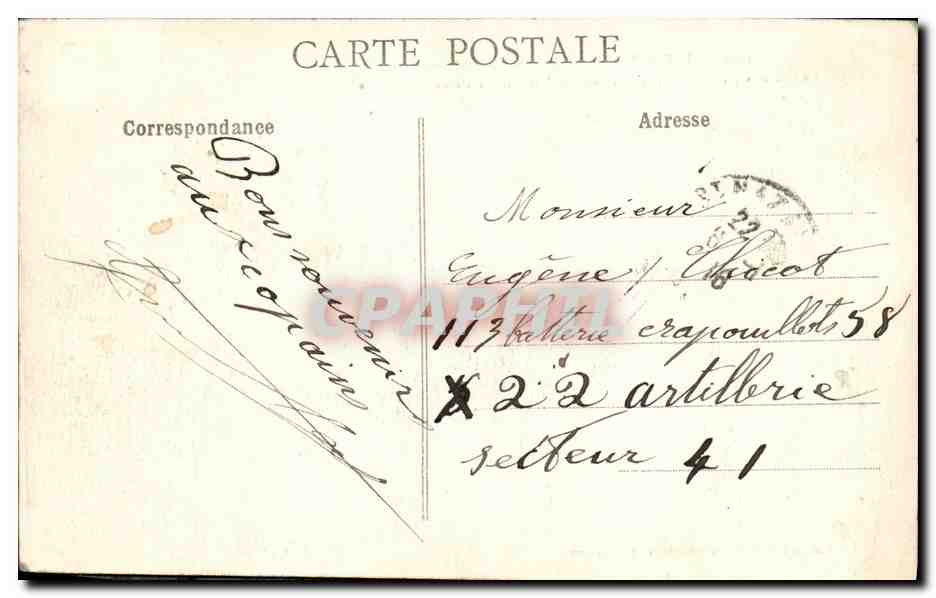 CARTE POSTALE
Correspondance
Bons souvenir
aux copains
Adresse
Monsieur
Eugène Chicot
113 batterie crapouillots 58
22 artillerie
secteur 41
ST NAZ
22
CPAPHIL